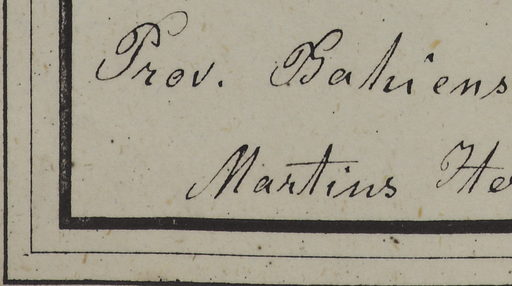 Prov. Bahiens
Martius He